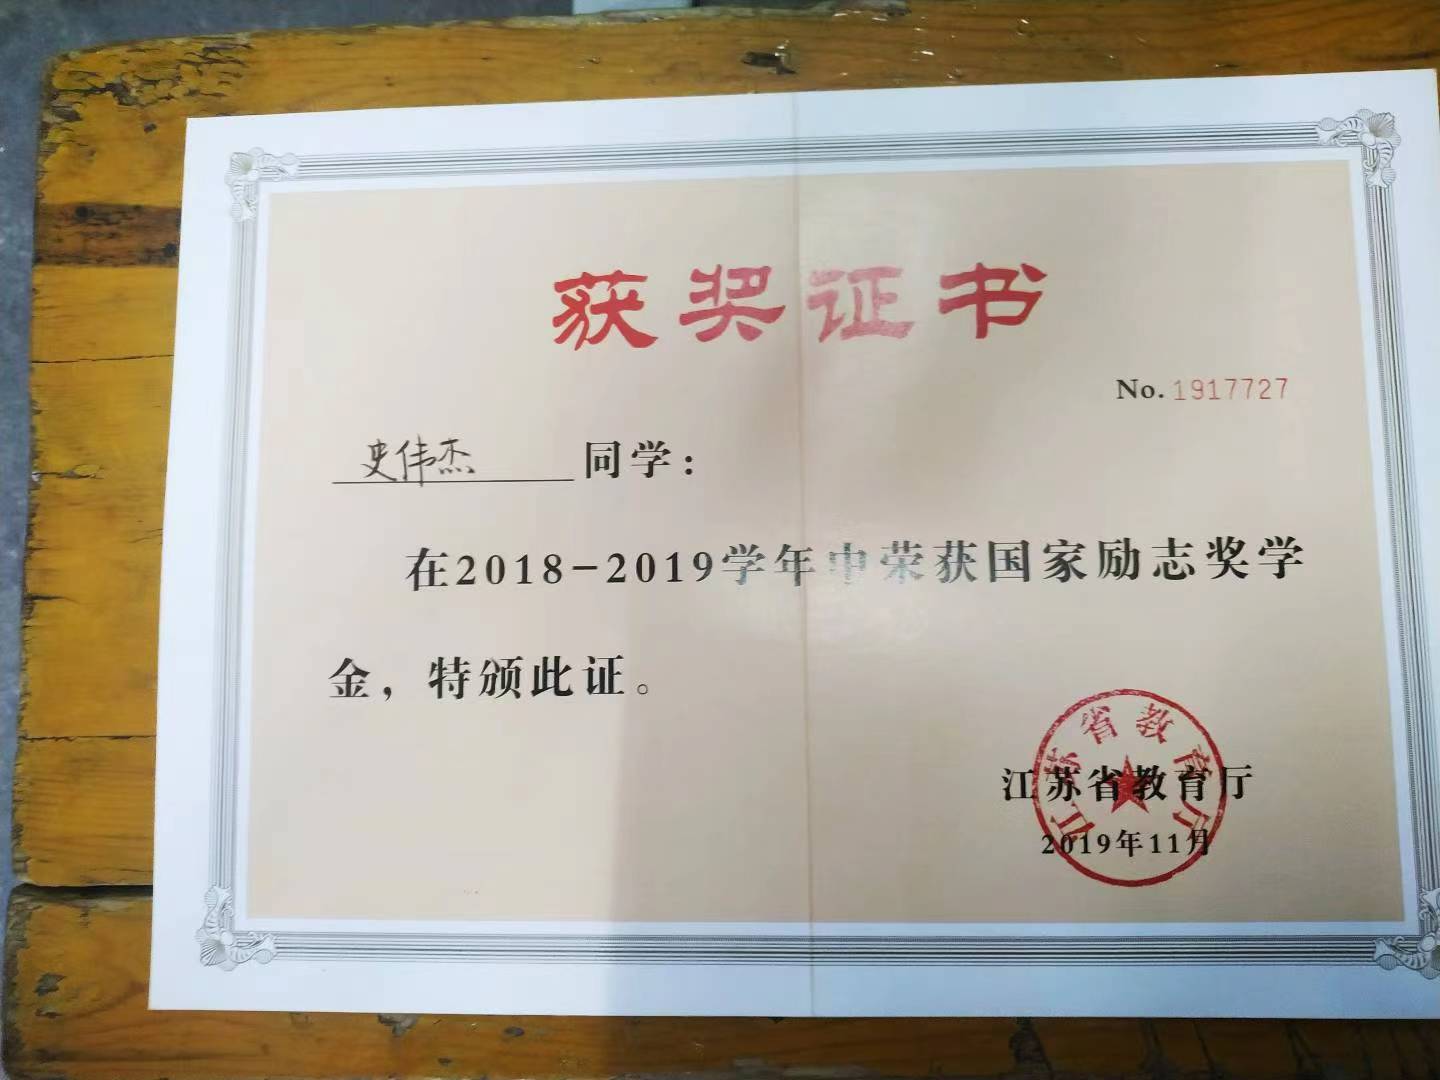 获奖证书
No. 1917727
史伟杰 同学：
在2018-2019学年中荣获国家励志奖学
金，特颁此证。
江苏省教育厅
2019年11月
江苏省教育厅